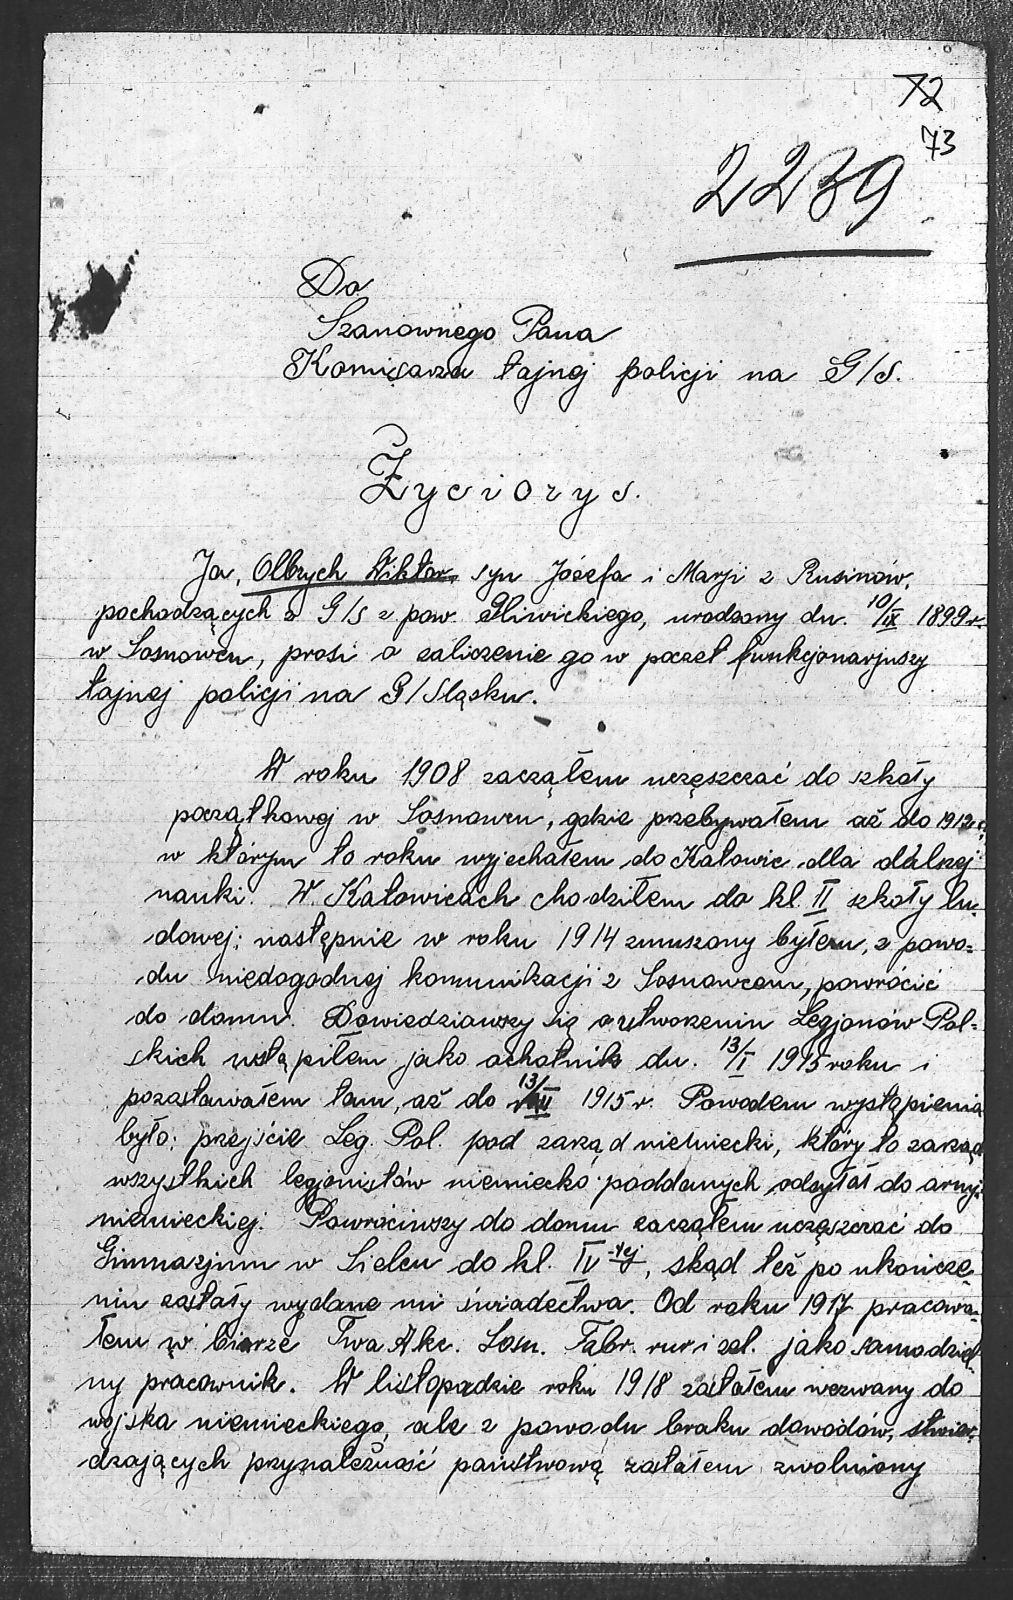 72
73
2239
Do
Szanownego Pana
Komisarza tajnej policji na G/S.
Życiorys.
Ja, Olbrych Wiktor, syn Józefa i Marji z Rusinów,
pochodzących z G/S z pow. Gliwickiego, urodzony dn. 10/IX 1899 r.
w Sosnowcu, prosi o zaliczenie go w poczet funkcjonarjuszy
tajnej policji na G/Sląsku.
W roku 1908 zacząłem uczęszczać do szkoły
początkowej w Sosnowcu, gdzie przebywałem aż do 1912 r.
w którym to roku wyjechałem do Katowic dla dalszej
nauki. W Katowicach chodziłem do kl. II szkoły lu-
dowej; następnie w roku 1914 zmuszony byłem, z powo-
du niedogodnej komunikacji z Sosnowcem, powrócić
do domu. Dowiedziawszy się o utworzeniu Legjonów Pol-
skich wstąpiłem jako ochotnik dn. 13/I 1915 roku i
pozostawałem tam, aż do 13/ 1915 r. Powodem wystąpienia
było: przejście Leg. Pol. pod zarząd niemiecki, który to zarząd
wszystkich legjonistów niemiecko poddanych odsyłał do armji
niemieckiej. Powróciwszy do domu zacząłem uczęszczać do
Gimnazjum w Sielcu do kl. IV-tej, skąd też po ukończe-
niu zostały wydane mi świadectwa. Od roku 1917 pracowa-
łem w biurze Twa Akc. Sosn. Fabr. rur i żel. jako samodziel-
ny pracownik. W listopadzie roku 1918 zostałem wezwany do
wojska niemieckiego, ale z powodu braku dowodów, stwier-
dzających przynależność państwową zostałem zwolniony